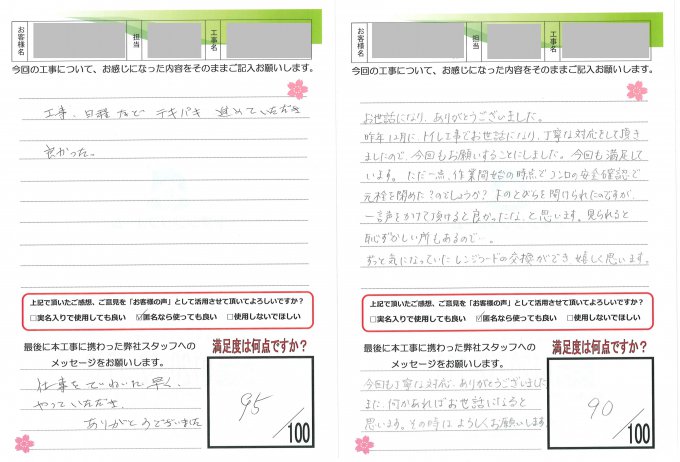 お客様名
担当
工事名
今回の工事について、お感じになった内容をそのままご記入お願いします。
工事、日程など テキパキ 進めていただき
良かった。
上記で頂いたご感想、ご意見を「お客様の声」として活用させて頂いてよろしいですか？
□実名入りで使用しても良い ☑匿名なら使っても良い □使用しないでほしい
最後に本工事に携わった弊社スタッフへの
メッセージをお願いします。
仕事をていねいに早く、
やっていただき、
ありがとうございました
満足度は何点ですか？
95
/100
お客様名
担当
工事名
今回の工事について、お感じになった内容をそのままご記入お願いします。
お世話になり、ありがとうございました。
昨年12月に トイレ工事でお世話になり、丁寧な対応をして頂き
ましたので、今回もお願いすることにしました。今回も満足して
います。ただ一点、作業開始の時点でコンロの安全確認で
元栓を閉めた?のでしょうか? 下のとびらを開けられたのですが、
一言声をかけて頂けると良かったな、と思います。見られると
恥ずかしい所もあるので…。
ずっと気になっていたレンジフードの交換ができ 嬉しく思います。
上記で頂いたご感想、ご意見を「お客様の声」として活用させて頂いてよろしいですか？
□実名入りで使用しても良い ☑匿名なら使っても良い □使用しないでほしい
最後に本工事に携わった弊社スタッフへの
メッセージをお願いします。
今回も丁寧な対応、ありがとうございました
また、何かあればお世話になると
思います。その時は よろしくお願いします。
満足度は何点ですか？
90
/100